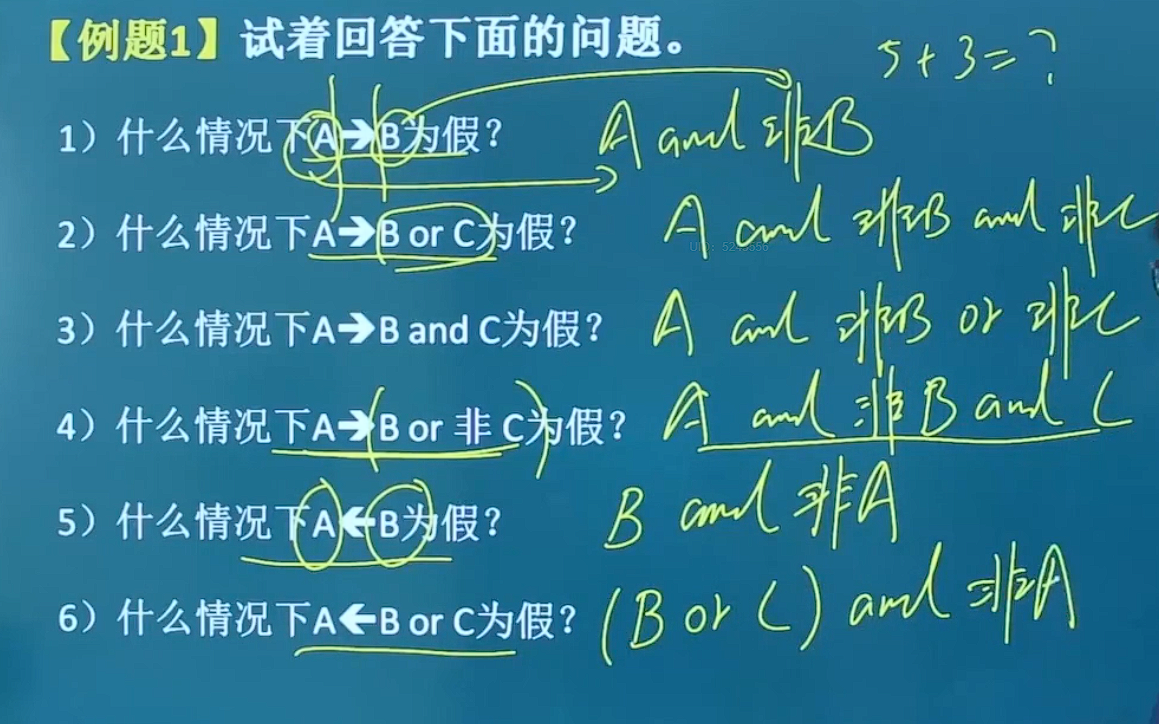 【例题1】试着回答下面的问题。 5+3=?
1）什么情况下A→B为假？ A and 非B
2）什么情况下A→B or C为假？ A and 非B and 非C
3）什么情况下A→B and C为假？ A and 非B or 非C
4）什么情况下A→(B or 非 C)为假？ A and 非B and C
5）什么情况下A←B为假？ B and 非A
6）什么情况下A←B or C为假？ (B or C) and 非A